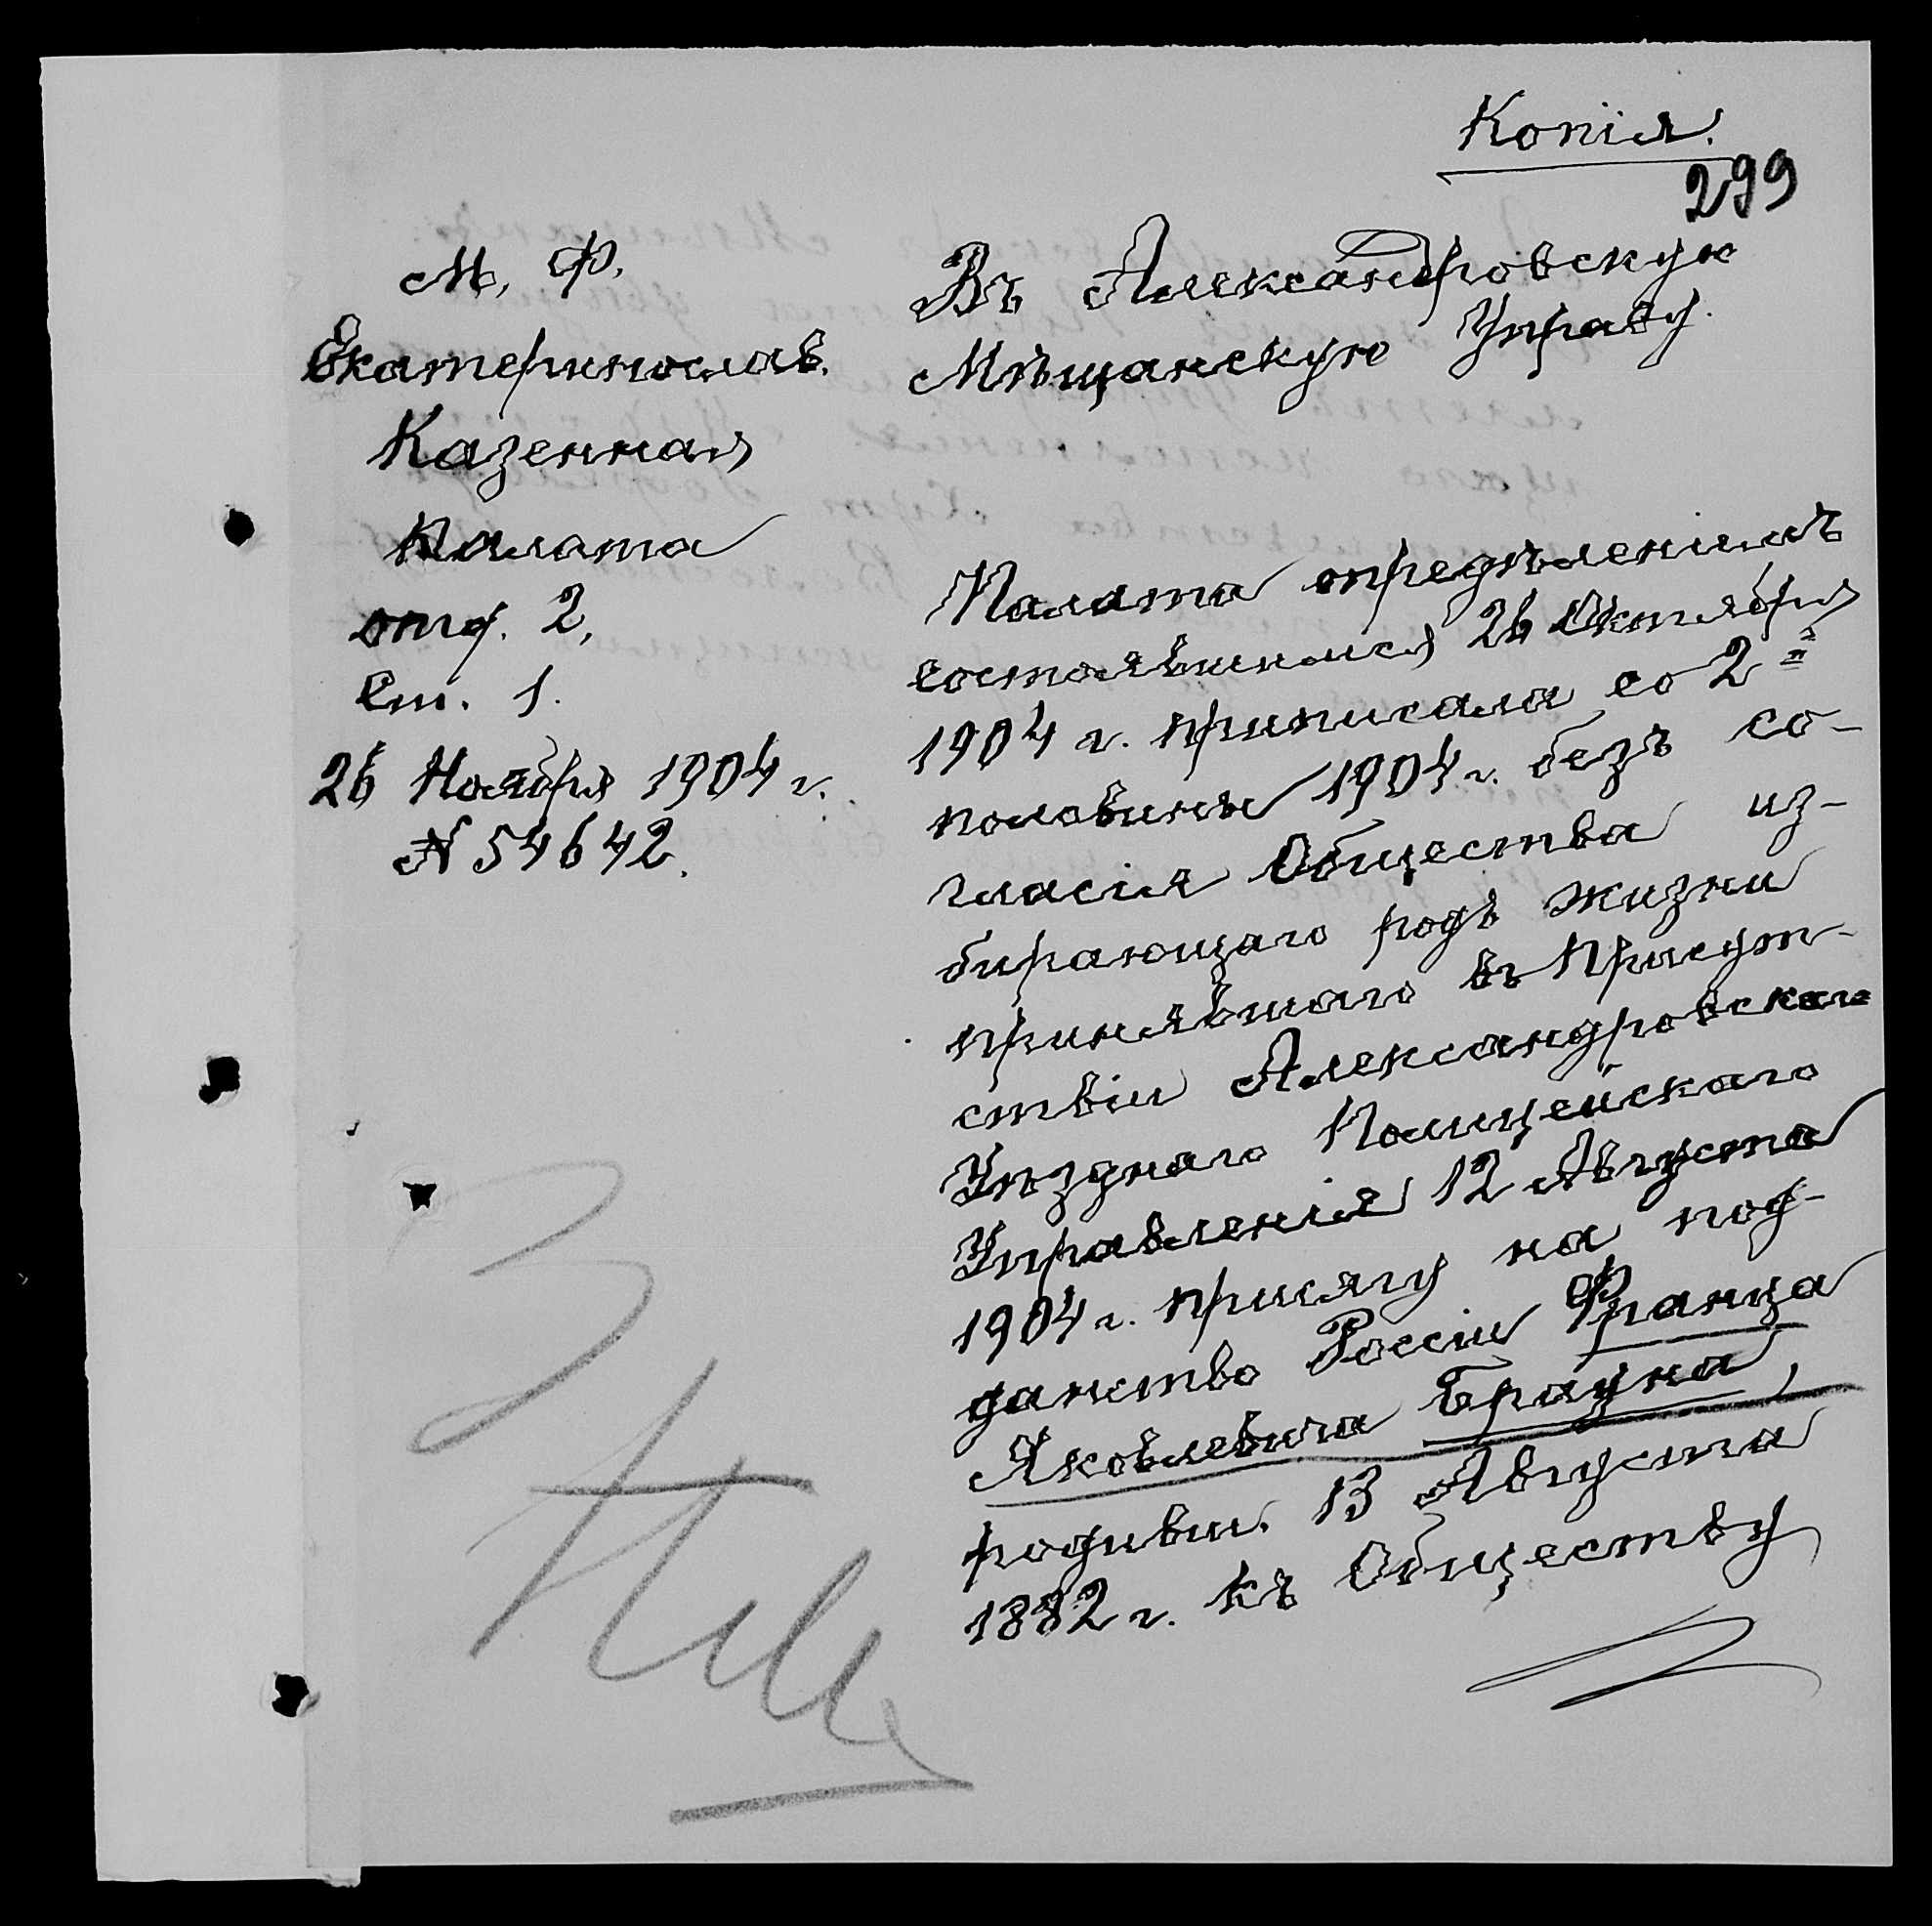 Копія.
299
М. Ф.
Екатеринослав.
Казенная
Палата
отд. 2,
Ст. 1.
26 Ноября 1904 г.
N 54642.
Въ Александровскую
Мѣщанскую Управу.
Палата опредѣленіемъ
состоявшимся 26 Октября
1904 г. приписала со 2й
половины 1904 г. безъ со-
гласія Общества из-
бирающаго родъ жизни
принявшаго въ Присут-
ствіи Александровскаго
Уѣзднаго Полицейскаго
Управленія 12 Августа
1904 г. присягу на под-
данство Россіи Франца
Яковлевича Брауна,
родивш. 13 Августа
1882 г. къ Обществу